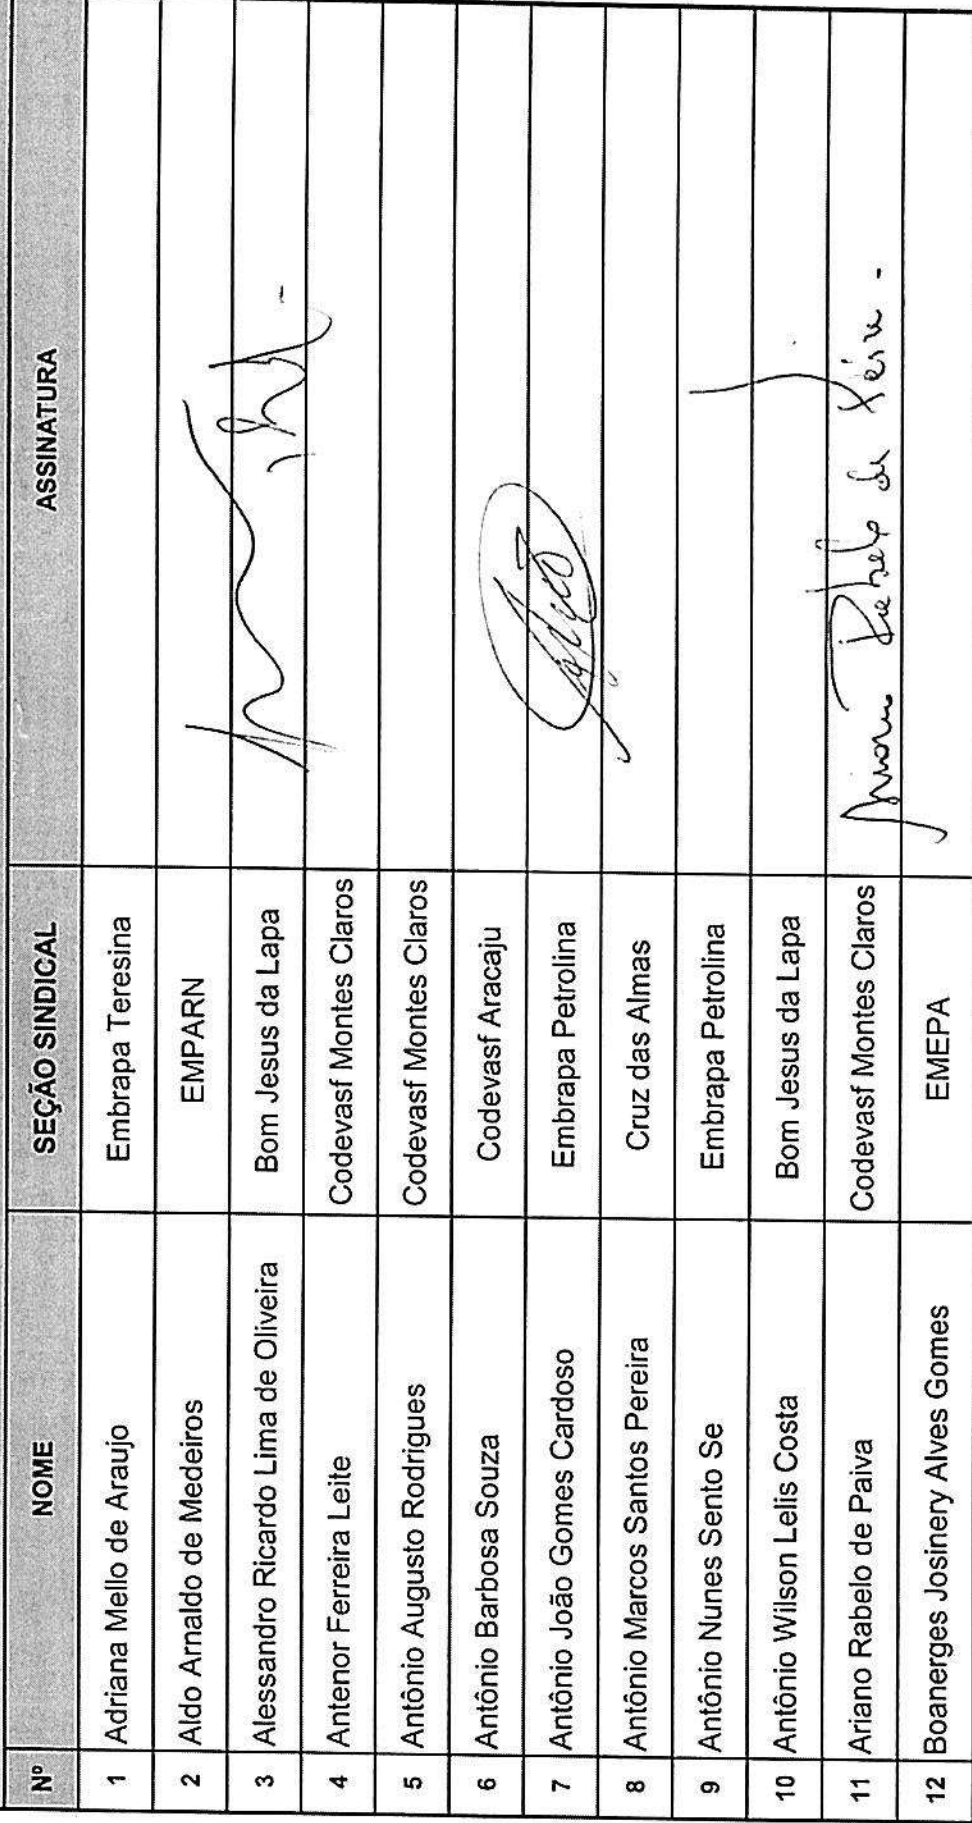 Nº NOME SEÇÃO SINDICAL ASSINATURA
1 Adriana Mello de Araujo Embrapa Teresina
2 Aldo Arnaldo de Medeiros EMPARN
3 Alessandro Ricardo Lima de Oliveira Bom Jesus da Lapa
4 Antenor Ferreira Leite Codevasf Montes Claros
5 Antônio Augusto Rodrigues Codevasf Montes Claros
6 Antônio Barbosa Souza Codevasf Aracaju
7 Antônio João Gomes Cardoso Embrapa Petrolina
8 Antônio Marcos Santos Pereira Cruz das Almas
9 Antônio Nunes Sento Se Embrapa Petrolina
10 Antônio Wilson Lelis Costa Bom Jesus da Lapa
11 Ariano Rabelo de Paiva Codevasf Montes Claros Rabelo de
12 Boanerges Josinery Alves Gomes EMEPA